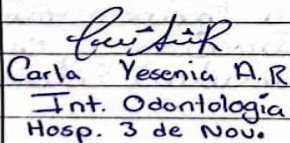 Carla Yesenia A.R
Int. Odontología
Hosp. 3 de Nov.